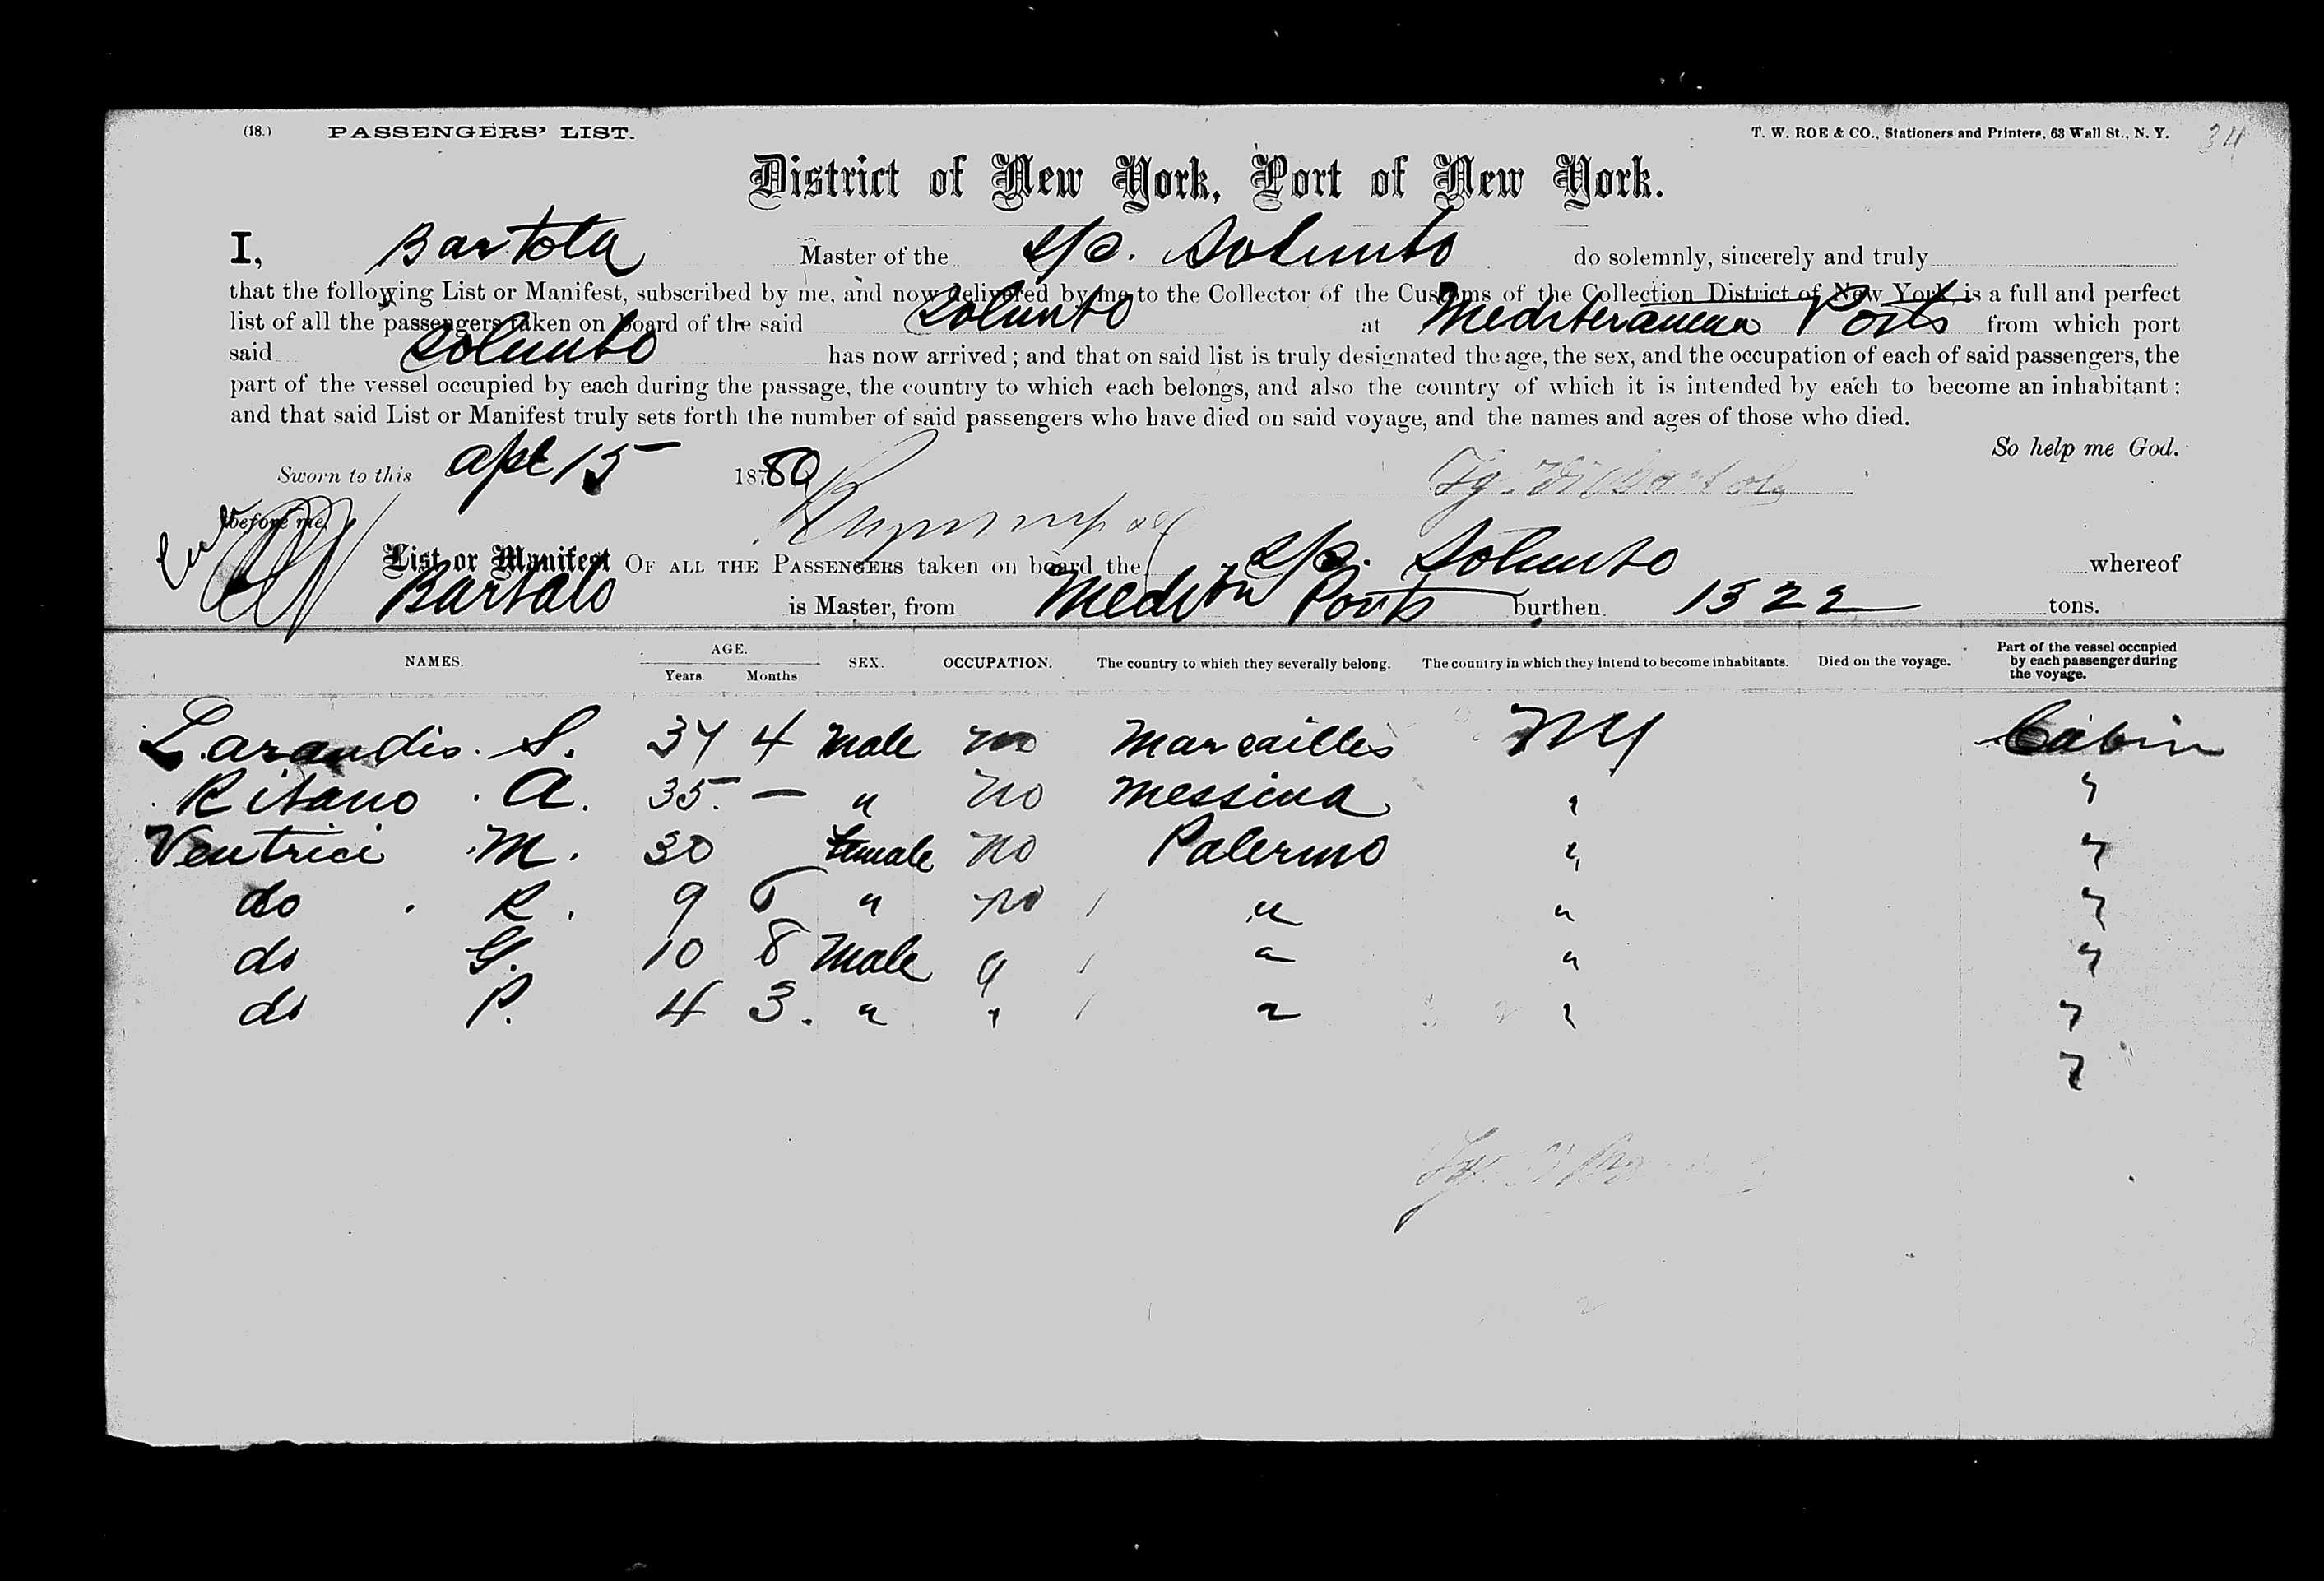 (18.) PASSENGERS' LIST. T. W. ROE & CO., Stationers and Printers, 63 Wall St., N. Y. 34
District of New York, Port of New York.
I, Bartola Master of the S/S. Solunto do solemnly, sincerely and truly
that the following List or Manifest, subscribed by me, and now delivered by me to the Collector of the Customs of the Collection District of New York is a full and perfect
list of all the passengers taken on board of the said Solunto at Mediteranean Ports from which port
said Solunto has now arrived; and that on said list is truly designated the age, the sex, and the occupation of each of said passengers, the
part of the vessel occupied by each during the passage, the country to which each belongs, and also the country of which it is intended by each to become an inhabitant;
and that said List or Manifest truly sets forth the number of said passengers who have died on said voyage, and the names and ages of those who died.
So help me God.
Sworn to this Apl 15 1880
before me,
List or Manifest OF ALL THE PASSENGERS taken on board the S/S. Solunto whereof
Bartalo is Master, from Meditn Ports burthen 1322 tons.
NAMES. AGE. Years Months SEX. OCCUPATION. The country to which they severally belong. The country in which they intend to become inhabitants. Died on the voyage. Part of the vessel occupied by each passenger during the voyage.
Larandis. S. 37 4 Male no Marcailles NY Cabin
Ritano . A. 35. — " no Messina " "
Ventrici . M. 30 Female no Palermo " "
do . R. 9 6 " no " " "
do G. 10 8 Male " " " "
do P. 4 3. " " " " "
"